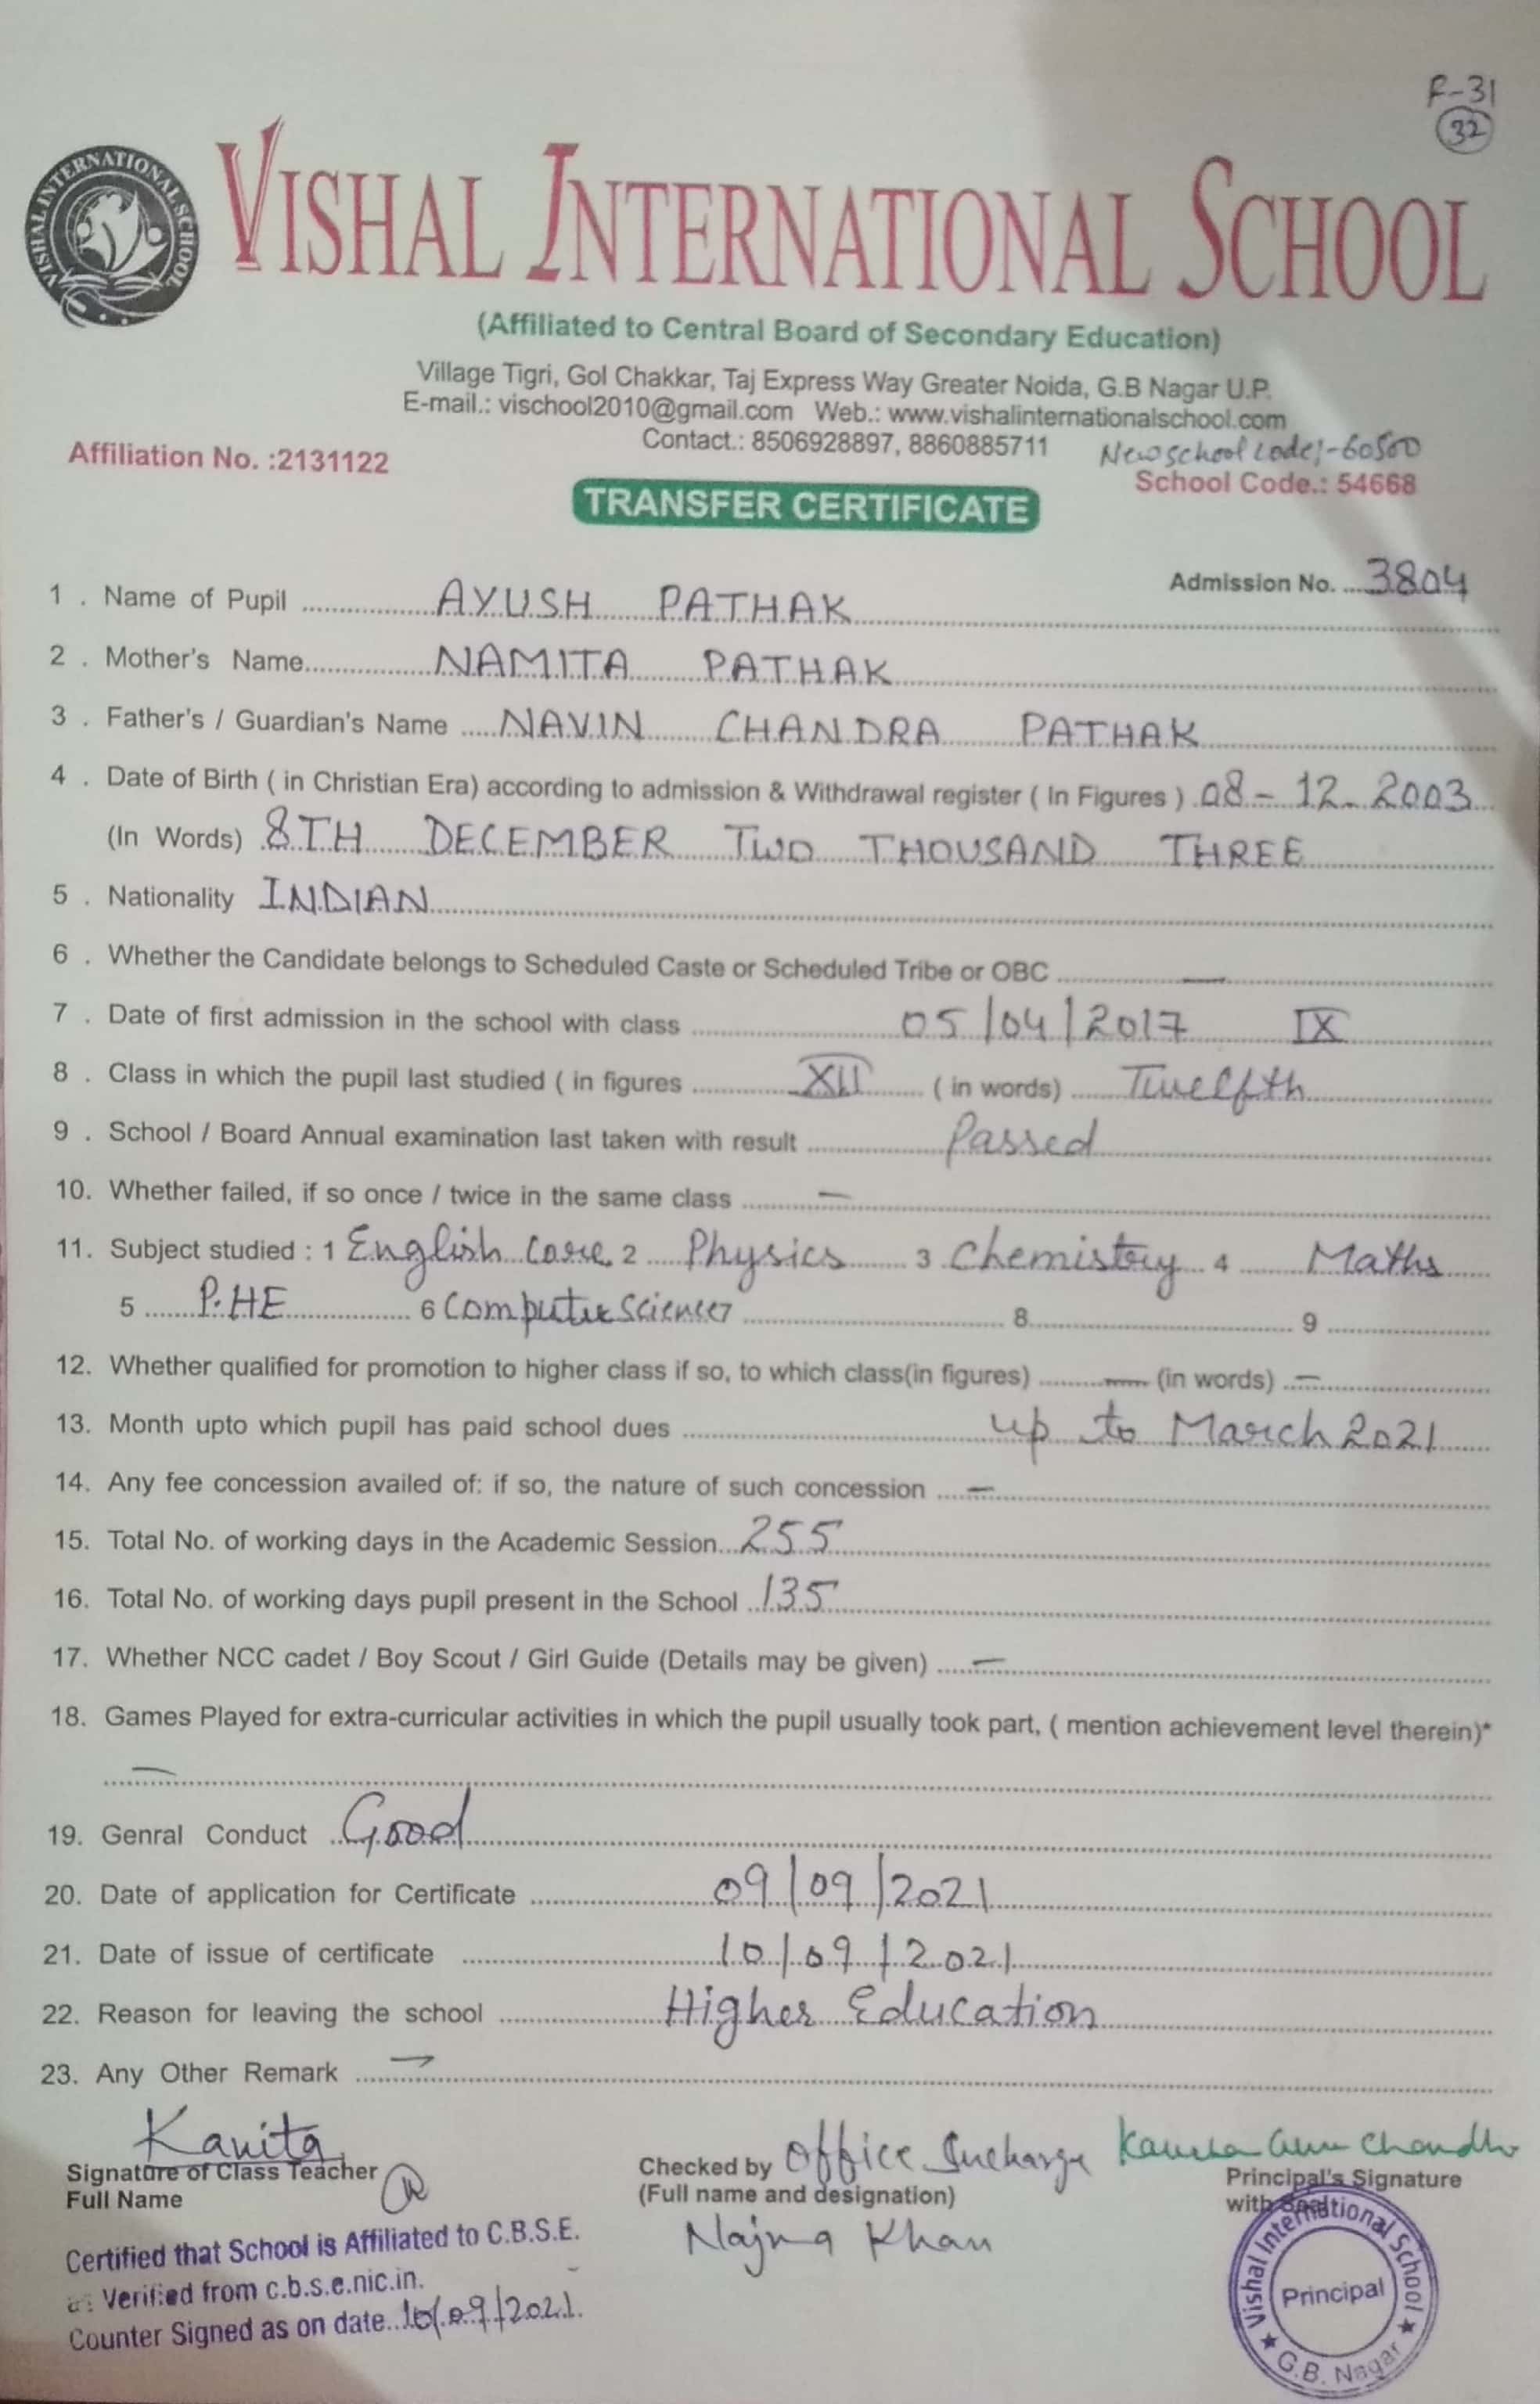 F-31
32
VISHAL INTERNATIONAL SCHOOL
VISHAL INTERNATIONAL SCHOOL
(Affiliated to Central Board of Secondary Education)
Village Tigri, Gol Chakkar, Taj Express Way Greater Noida, G.B Nagar U.P.
E-mail.: vischool2010@gmail.com Web.: www.vishalinternationalschool.com
Contact.: 8506928897, 8860885711 New school code:-60500
Affiliation No. :2131122 School Code.: 54668
TRANSFER CERTIFICATE
Admission No. ....3804
1 . Name of Pupil ........ AYUSH PATHAK
2 . Mother's Name........ NAMITA PATHAK
3 . Father's / Guardian's Name ..... NAVIN CHANDRA PATHAK
4 . Date of Birth ( in Christian Era) according to admission & Withdrawal register ( In Figures ) 08-12-2003
(In Words) 8TH DECEMBER TWO THOUSAND THREE
5 . Nationality INDIAN
6 . Whether the Candidate belongs to Scheduled Caste or Scheduled Tribe or OBC ........ —
7 . Date of first admission in the school with class ........ 05/04/2017 IX
8 . Class in which the pupil last studied ( in figures ........ XII ........ ( in words) ........ Twelfth
9 . School / Board Annual examination last taken with result ........ Passed
10. Whether failed, if so once / twice in the same class ........ —
11. Subject studied : 1 English Core 2 ..... Physics ..... 3 Chemistry 4 ..... Maths
5 ..... P.HE ..... 6 Computer Science 7 ........ 8 ........ 9 ........
12. Whether qualified for promotion to higher class if so, to which class(in figures) ........ — (in words) ... —
13. Month upto which pupil has paid school dues ........ up to March 2021
14. Any fee concession availed of: if so, the nature of such concession .... —
15. Total No. of working days in the Academic Session... 255
16. Total No. of working days pupil present in the School ... 135
17. Whether NCC cadet / Boy Scout / Girl Guide (Details may be given) .... —
18. Games Played for extra-curricular activities in which the pupil usually took part, ( mention achievement level therein)*
—
19. Genral Conduct ... Good
20. Date of application for Certificate ........ 09/09/2021
21. Date of issue of certificate ........ 10/09/2021
22. Reason for leaving the school ........ Higher Education
23. Any Other Remark ..... —
Kavita
Signature of Class Teacher
Full Name
Checked by Office Incharge
(Full name and designation)
Najma Khan
Principal's Signature
with Seal
Certified that School is Affiliated to C.B.S.E.
as Verified from c.b.s.e.nic.in.
Counter Signed as on date... 10/09/2021.
Vishal International School
Principal
★ G.B. Nagar ★